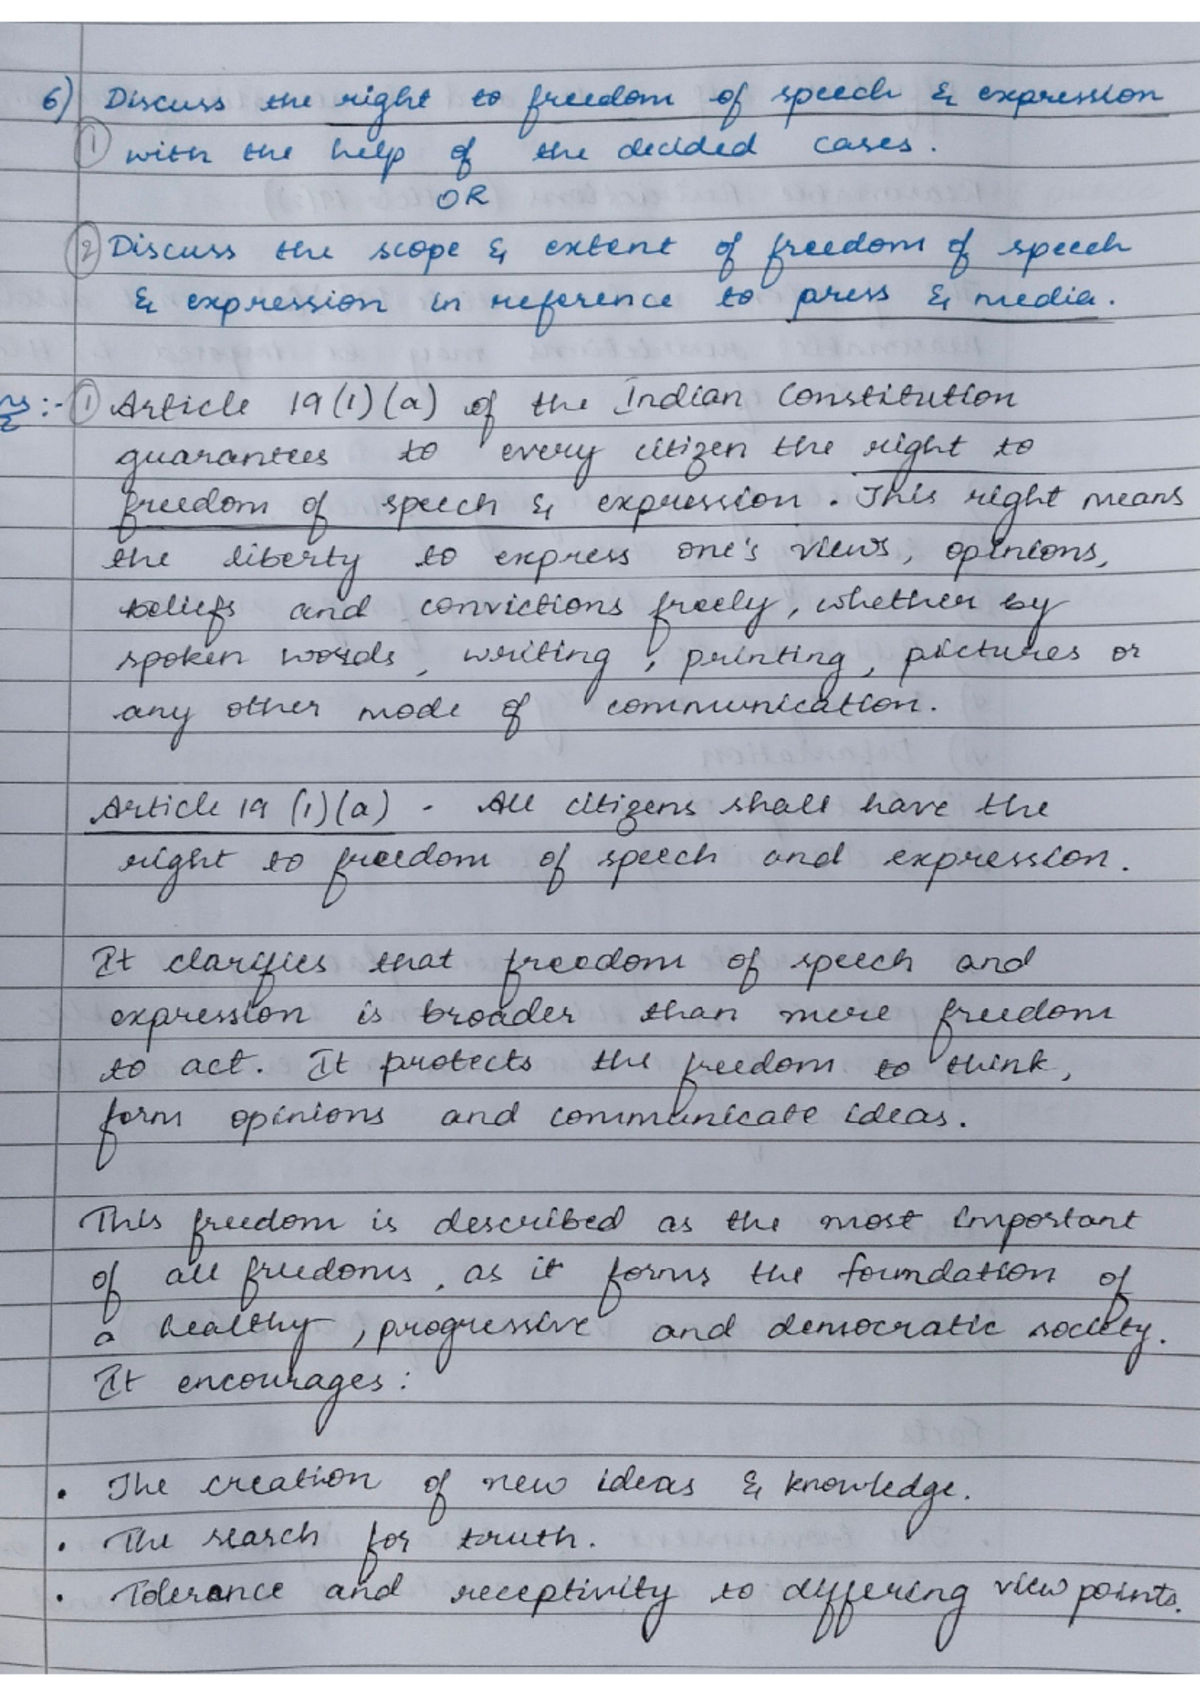 6) Discuss the right to freedom of speech & expression
① with the help of the decided cases.
OR
② Discuss the scope & extent of freedom of speech
& expression in reference to press & media.
:- ① Article 19(1)(a) of the Indian Constitution
guarantees to every citizen the right to
freedom of speech & expression. This right means
the liberty to express one's views, opinions,
beliefs and convictions freely, whether by
spoken words, writing, printing, pictures or
any other mode of communication.
Article 19 (1)(a) - All citizens shall have the
right to freedom of speech and expression.
It clarifies that freedom of speech and
expression is broader than mere freedom
to act. It protects the freedom to think,
form opinions and communicate ideas.
This freedom is described as the most important
of all freedoms, as it forms the foundation of
a healthy, progressive and democratic society.
It encourages:
• The creation of new ideas & knowledge.
• The search for truth.
• Tolerance and receptivity to differing view points.